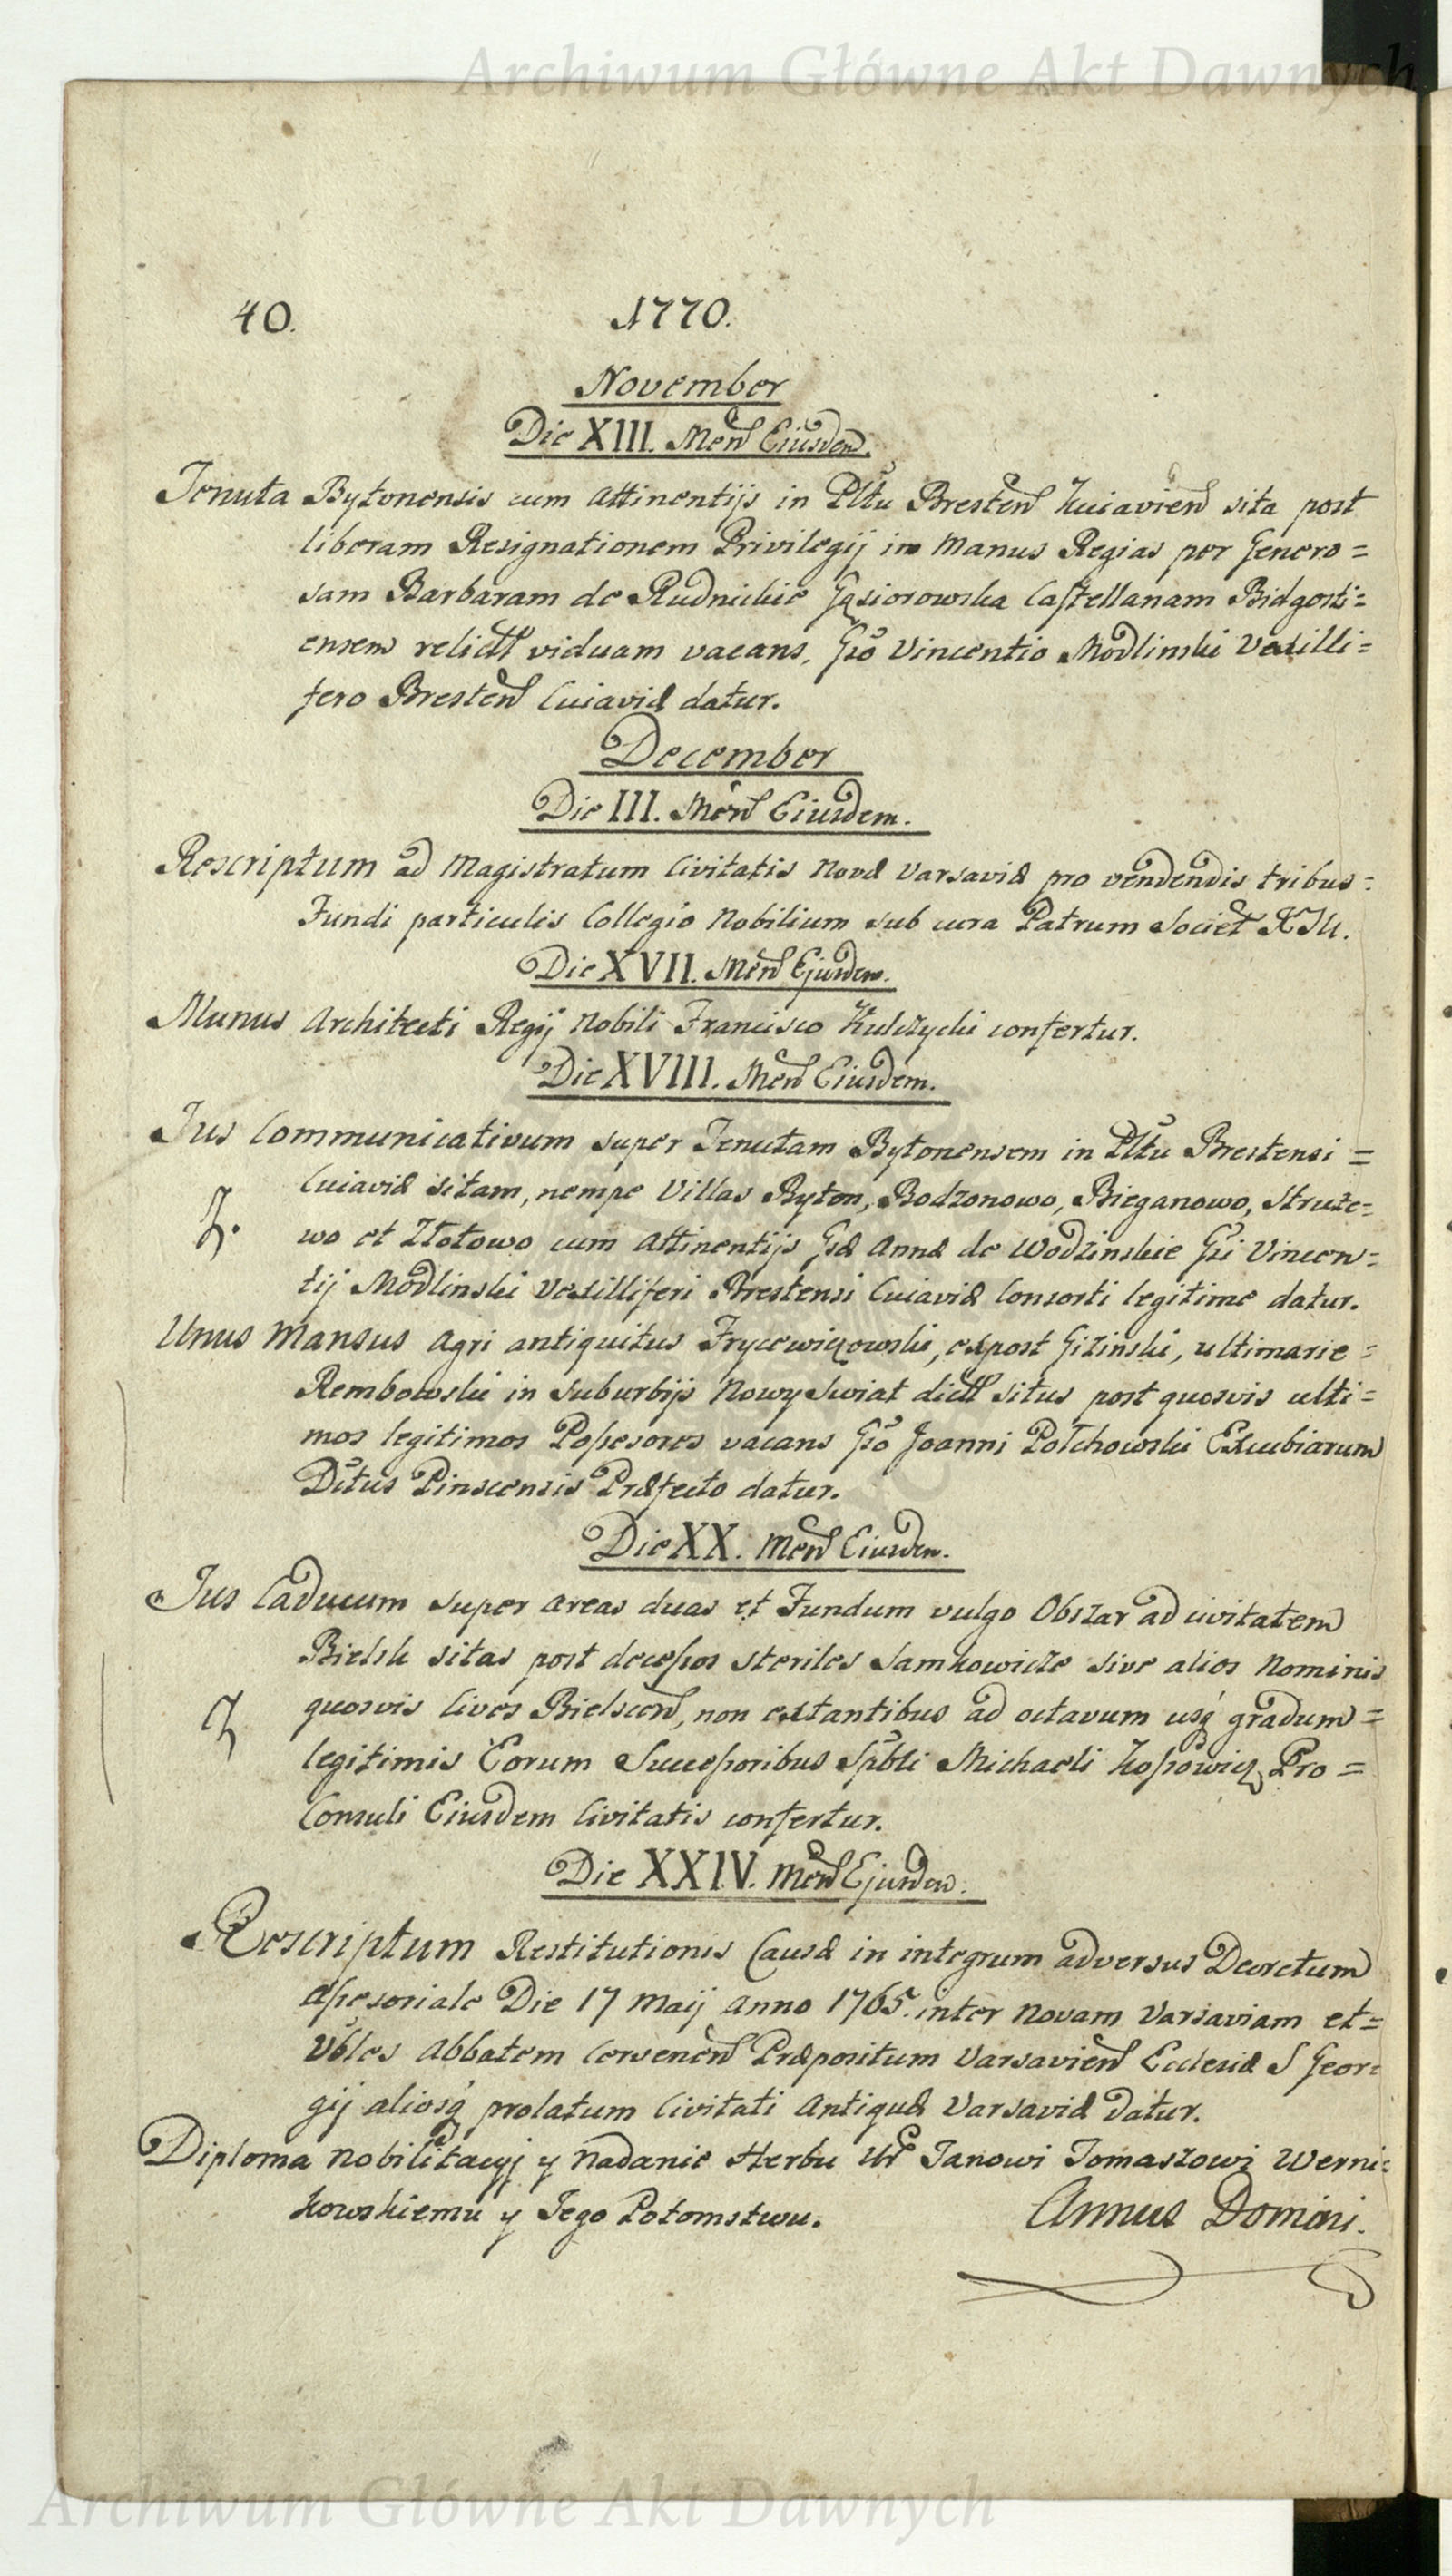 Archiwum Główne Akt Dawnych
40. 1770.
November
Die XIII. Men̄ Eiusdem.
Tenuta Bytonensis cum attinentijs in Pltu Bresten̄ Kuiavien̄ sita post
liberam Resignationem Privilegij in Manus Regias per Genero=
sam Barbaram de Rudnickie Gąsiorowska Castellanam Bidgosti=
ensem relictt viduam vacans, Gso Vincentio Modlinski Vexilli=
fero Bresten̄ Cuiaviæ datur.
December
Die III. Men̄ Eiusdem.
Rescriptum ad Magistratum Civitatis Novæ Varsaviæ pro vendendis tribus=
Fundi particulis Collegio Nobilium sub cura Patrum Societ
Die XVII. Men̄ Ejusdem.
Munus Architecti Regij Nobili Francisco Kulczycki confertur.
Die XVIII. Men̄ Eiusdem.
Jus Communicativum super Tenutam Bytonensem in Pltu Brestensi=
Cuiaviæ sitam, nempe Villas Byton, Bodzonowo, Bieganowo, Struże=
wo et Złotowo cum attinentijs Gsæ Annæ de Wodzinskie Gsi Vincen=
tij Modlinski Vexilliferi Brestensi Cuiaviæ Consorti legitime datur.
Unus Mansus Agri antiquitus Frycewiczowski, expost Giżinski, ultimarie=
Rembowski in Suburbijs Nowy Swiat dictt situs post quosvis ulti=
mos legitimos Possesores vacans Gso Joanni Połchowski Excubiarum
Dttus Pinscensis Præfecto datur.
Die XX. Men̄ Eiusdem.
Jus Caducum super areas duas et Fundum vulgo Obszar ad civitatem
Bielsk sitas post decessos steriles Samkowicze sive alios Nominis
quosvis Cives Bielscen̄, non extantibus ad octavum usq́ gradum=
legitimis Eorum Successoribus Spbli Michaeli Kossowicz Pro=
Consuli Eiusdem Civitatis confertur.
Die XXIV. Men̄ Ejusdem.
Rescriptum Restitutionis Causæ in integrum adversus Decretum
Assesoriale Die 17 Maij Anno 1765. inter Novam Varsaviam et=
Vbles Abbatem Cervenen̄ Præpositum Varsavien̄ Ecclesiæ S Geor=
gij aliosq́ prolatum Civitati Antiquæ Varsaviæ datur.
Diploma Nobilitacyj y Nadanie Herbu Ur Janowi Tomaszowi Werni=
kowskiemu y Jego Potomstwu. Annus Domini.
Archiwum Główne Akt Dawnych